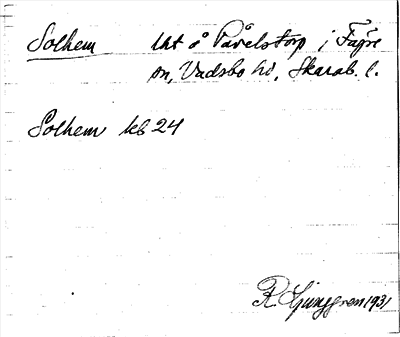 Solhem lht å Pavelstorp i Fägre
sn, Vadsbo hd, Skarab. l.
Solhem kb 24
R. Ljunggren 1931